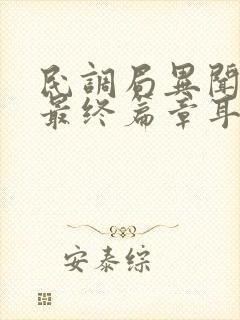 民調局異聞
最终篇章耳
安泰综